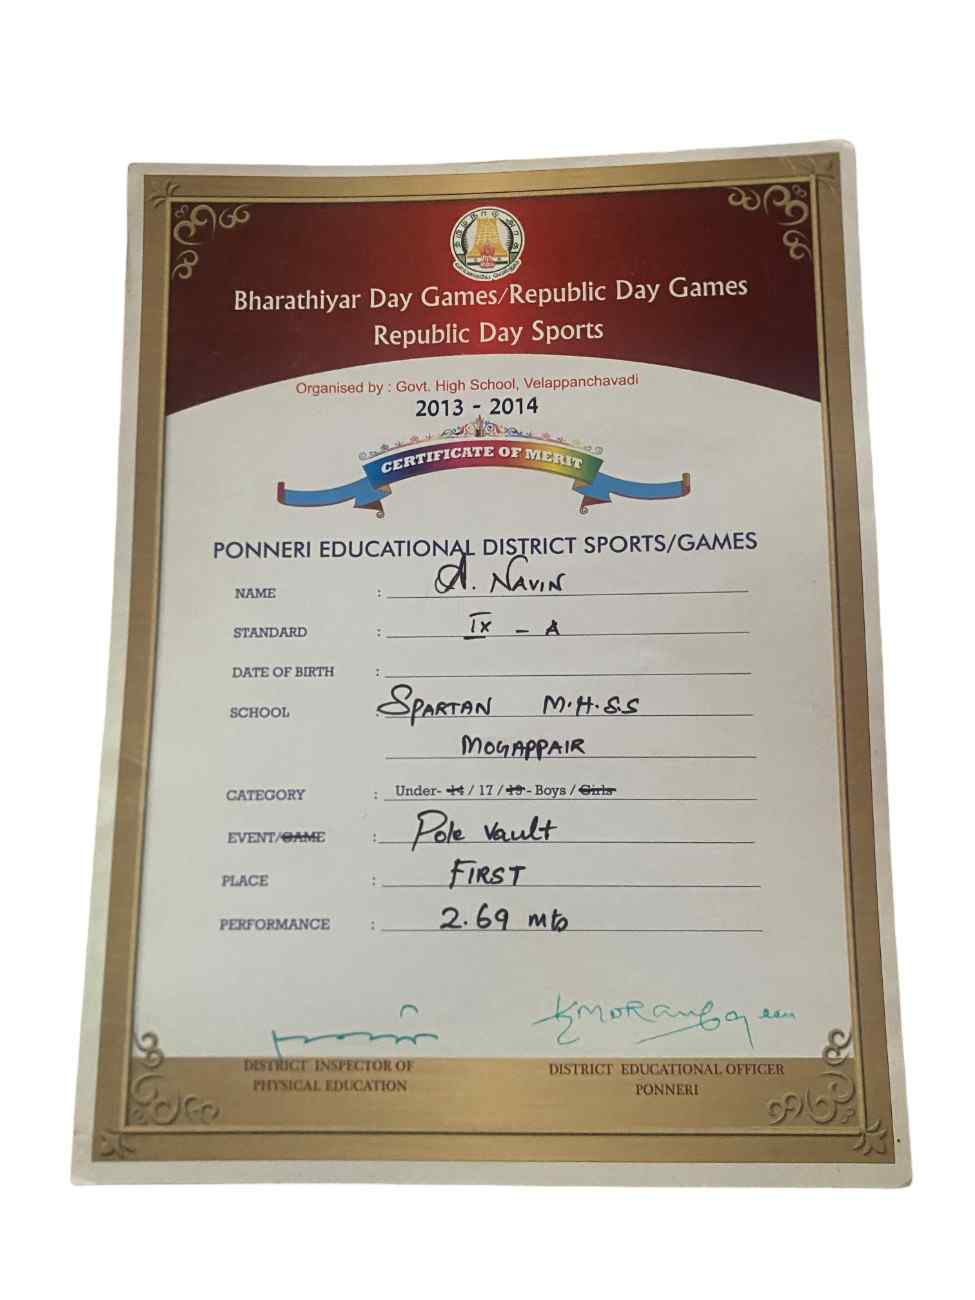 Bharathiyar Day Games/Republic Day Games
Republic Day Sports
Organised by : Govt. High School, Velappanchavadi
2013 - 2014
CERTIFICATE OF MERIT
PONNERI EDUCATIONAL DISTRICT SPORTS/GAMES
NAME : A. NAVIN
STANDARD : IX - A
DATE OF BIRTH :
SCHOOL : SPARTAN M.H.S.S
MOGAPPAIR
CATEGORY : Under- 14 / 17 / 19 - Boys / Girls
EVENT/GAME : Pole vault
PLACE : FIRST
PERFORMANCE : 2.69 mts
DISTRICT INSPECTOR OF
PHYSICAL EDUCATION
DISTRICT EDUCATIONAL OFFICER
PONNERI